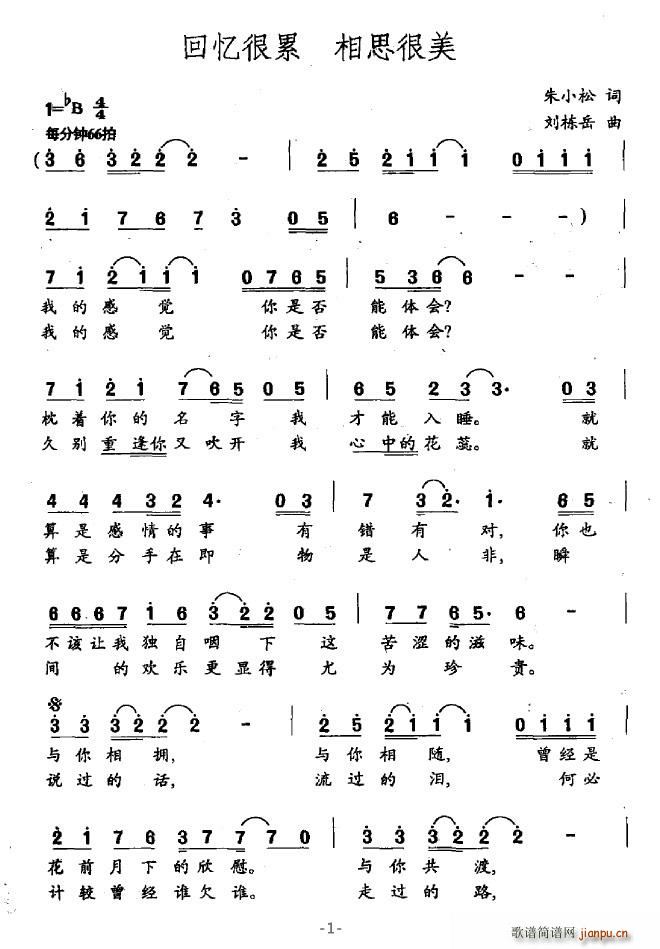 回忆很累 相思很美
1=♭B 4/4
朱小松 词
每分钟66拍
刘栋岳 曲
(3 6 3 2 2 2 - | 2 5 2 1 1 1 | 0 1 1 1
2 1 7 6 7 3 0 5 | 6 - - - )
7 1 2 1 1 1 0 7 6 5 | 5 3 6 6 -
我的感觉 你是否 能体会?
我的感觉 你是否 能体会?
7 1 2 1 7 6 5 0 5 | 6 5 2 3 3· 0 3
枕着你的名字我 才能入睡。 就
久别重逢你又吹开我 心中的花蕊。 就
4 4 4 3 2 4· 0 3 | 7 3 2· 1· 6 5
算是感情的事 有 错有对,你也
算是分手在即 物 是人非,瞬
6 6 6 7 1 6 3 2 2 0 5 | 7 7 6 5· 6 -
不该让我独自咽下这 苦涩的滋味。
间的欢乐更显得尤 为珍贵。
3 3 3 2 2 2 - | 2 5 2 1 1 1 0 1 1 1
与你相拥, 与你相随, 曾经是
说过的话, 流过的泪, 何必
2 1 7 6 3 7 7 7 0 | 3 3 3 2 2 2 -
花前月下的欣慰。 与你共渡,
计较曾经谁欠谁。 走过的路,
-1-
歌谱简谱网
jianpu.cn